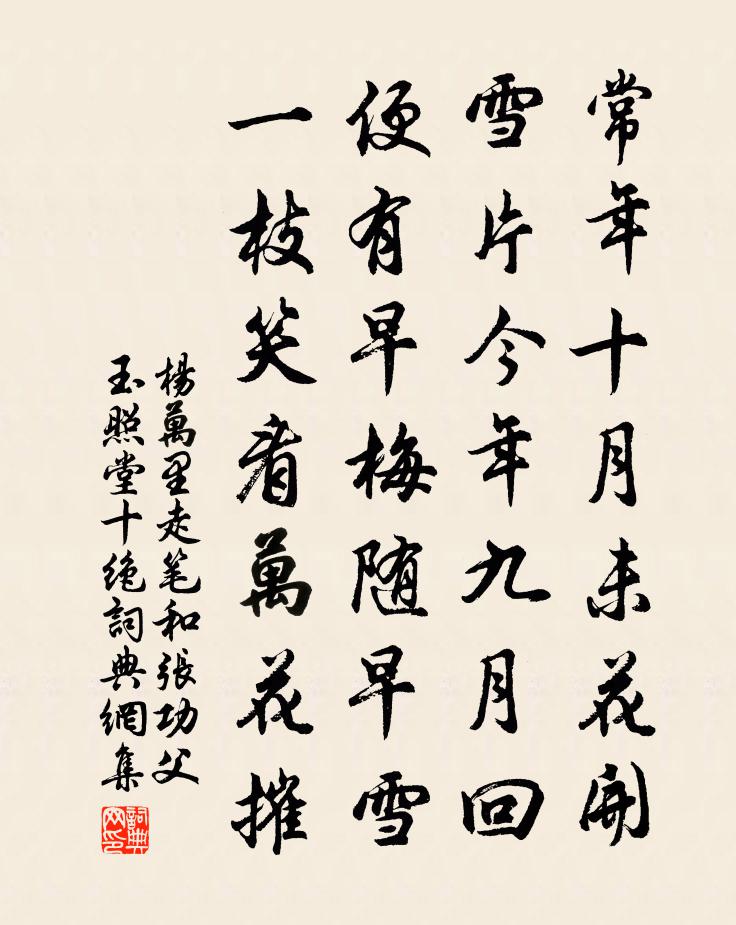 常年十月未花開
雪片今年九月回
便有早梅随早雪
一枝笑看萬花摧
楊萬里走笔和張功父
玉照堂十绝詞典網集
詞典
网印